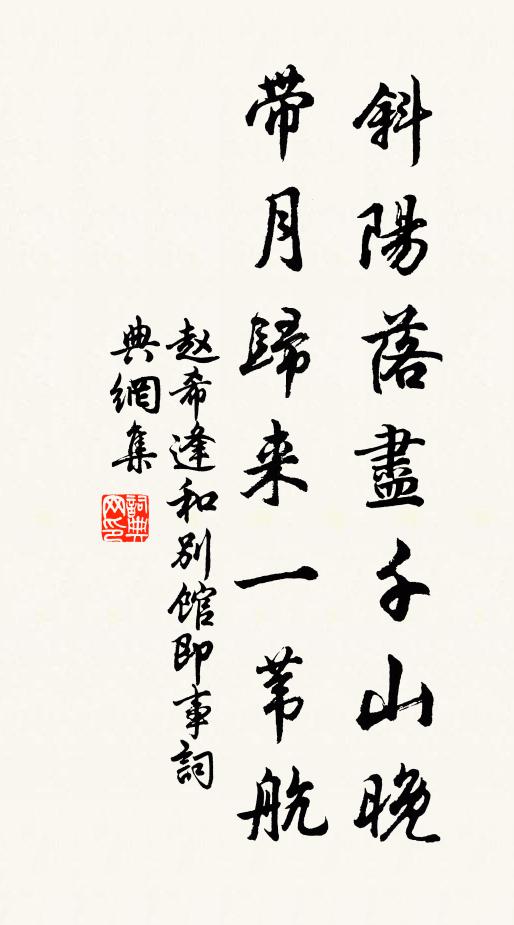 斜陽落盡千山晚
帶月歸来一苇航
赵希逢和别馆即事詞
典網集
詞典
网印